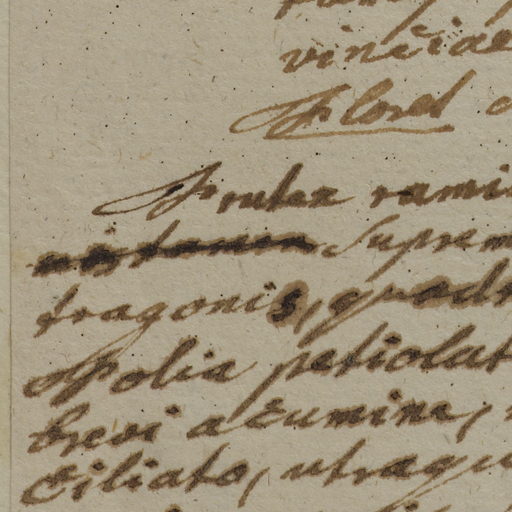 vinciae
Floret
Frutex rami
Suprem
tragonis, quadr
Folia petiolat
brevi acumine,
Ciliato, utraqu